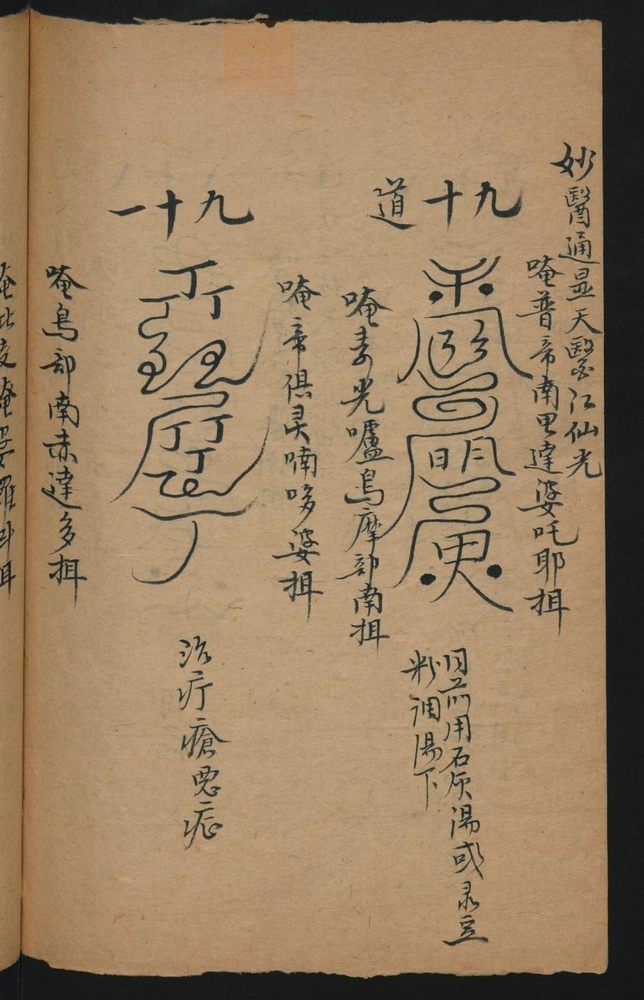 妙醫通显天醫江仙光
唵普帝南里達婆吒耶揖
九十道
日前用石灰湯或录豆
粉调湯下
唵专光嚧烏摩部南揖
唵帝俱灵喃哆婆揖
九十一
治疔瘡恶症
唵烏部南赤達多揖